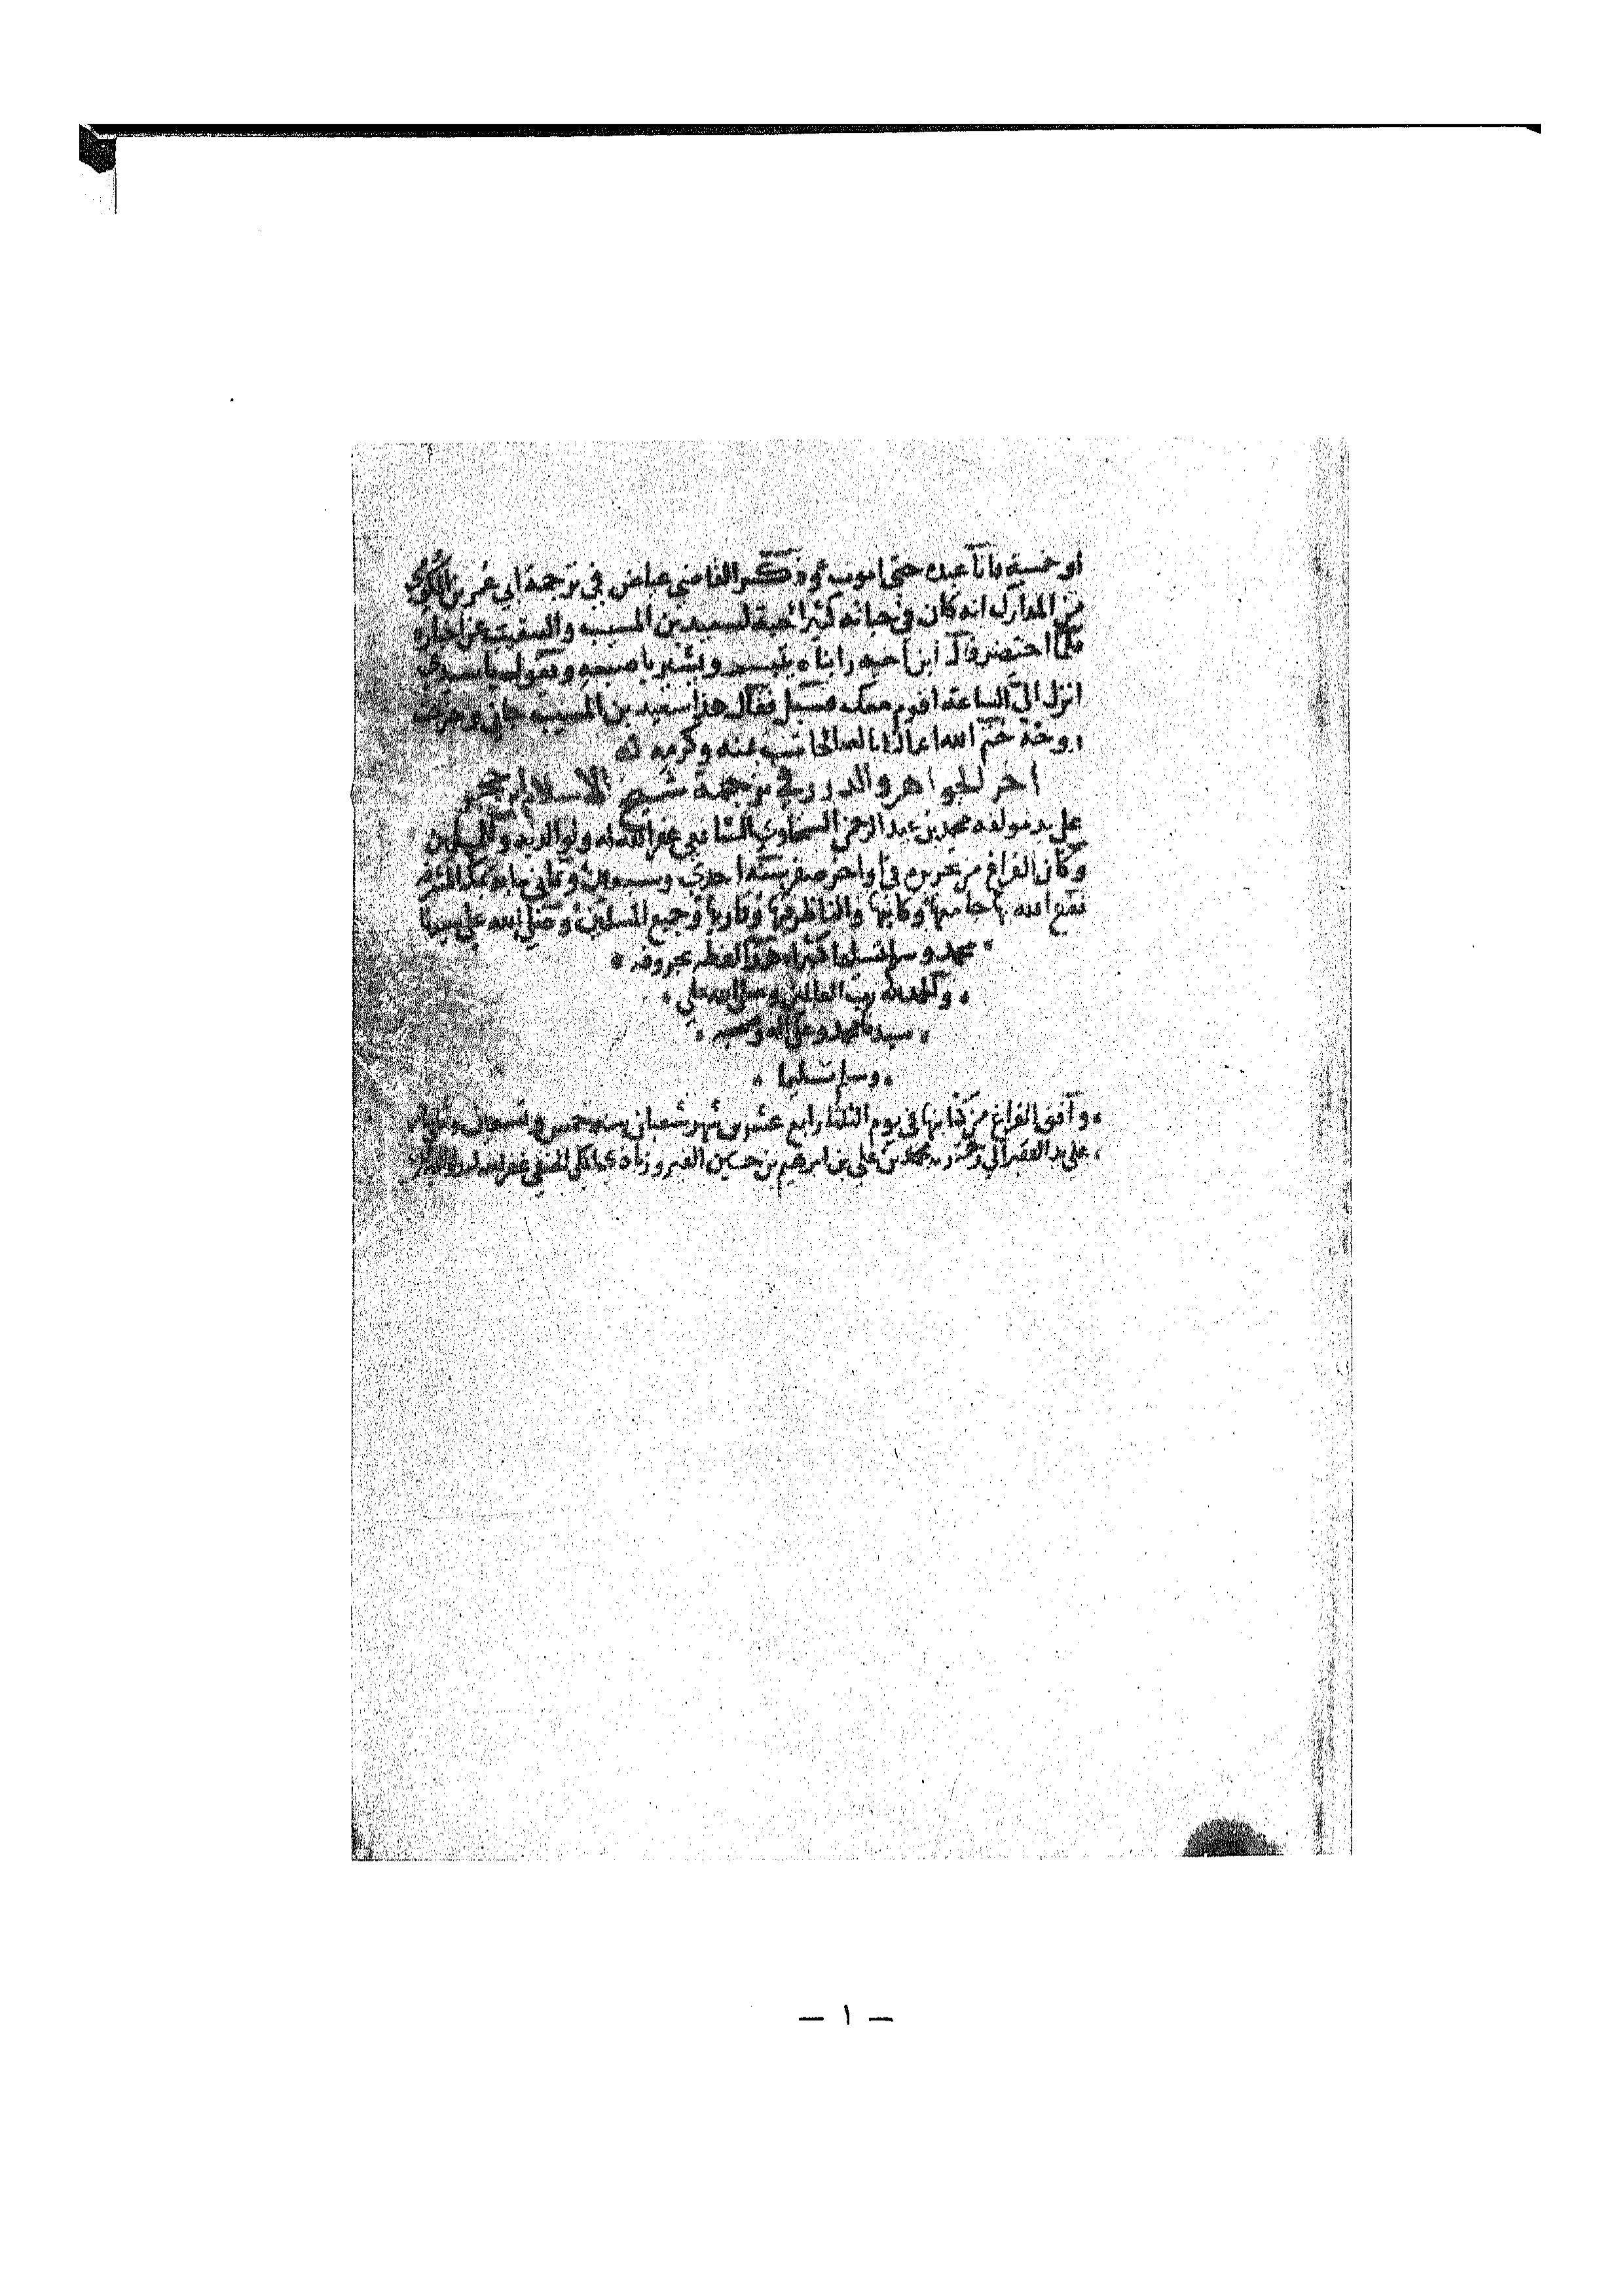 او خمسة فانا عبده حتى اموت وذكر القاضي عياض في ترجمة ابي عمر بن
من المدارك انه كان في حياته كثير المحبة لسعيد بن المسيب والتنقيب عن اخباره
فلما احتضر قال ابن اخيه رايناه يتبسم ويشير باصبعه ويقول يا سيدي
انزل الي الساعة اقوم معك فسئل فقال هذا سعيد بن المسيب جاني وخرجت
روحه ختم الله اعمالنا بالصالحات بمنه وكرمه
اخر الجواهر والدرر في ترجمة شيخ الاسلام ابن حجر
على يد مولفه محمد بن عبد الرحمن السخاوي الشافعي غفر الله له ولوالديه والمسلمين
وكان الفراغ من تحريره في اواخر صفر سنة احدى وسبعين وثماني ماية بمكة المشرفة
نفع الله بها جامعها وكاتبها والناظر فيها وقاريها وجميع المسلمين وصلى الله على سيدنا
محمد وسلم تسليما كثيرا هذا لفظه بحروفه
والحمد لله رب العالمين وصلى الله على
سيدنا محمد وعلى اله وصحبه
وسلم تسليما
وافق الفراغ من كتابتها في يوم الثلثا رابع عشر من شهر شعبان سنة خمس وتسعين
على يد الفقير الى رحمة ربه محمد بن علي بن ابرهيم بن حسين الحنفي غفر الله له
— ١ —